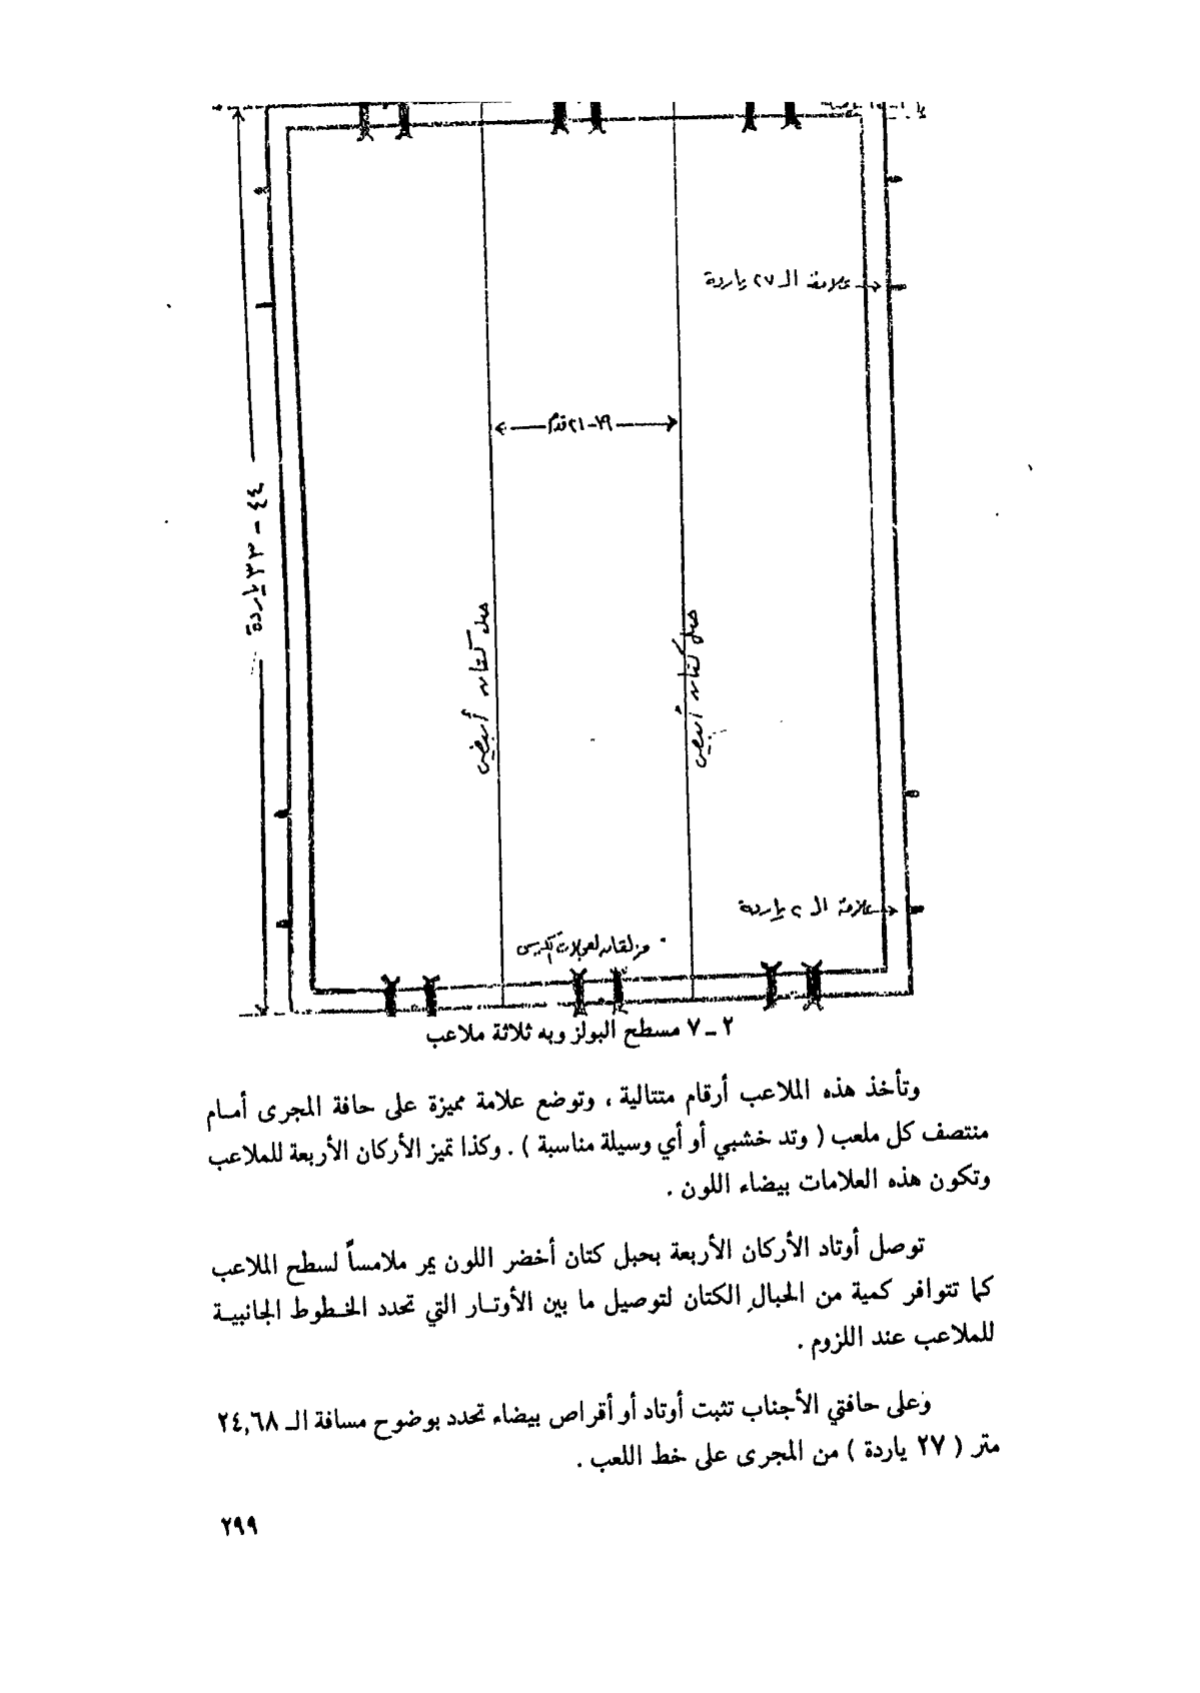 علامة الـ ٢٧ ياردة
١٩-٢١ قدم
٤٤ - ٣٣ ياردة
حبل كتان أبيض
حبل كتان أبيض
علامة الـ ٢ ياردة
مزلقان لعجلات الكرسى
٢ ـ ٧ مسطح البولز وبه ثلاثة ملاعب
وتأخذ هذه الملاعب أرقام متتالية ، وتوضع علامة مميزة على حافة المجرى أمـام
منتصف كل ملعب ( وتد خشبي أو أي وسيلة مناسبة ) . وكذا تميز الأركان الأربعة للملاعب
وتكون هذه العلامات بيضاء اللون .
توصل أوتاد الأركان الأربعة بحبل كتان أخضر اللون يمر ملامساً لسطح الملاعب
كما تتوافر كمية من الحبال الكتان لتوصيل ما بين الأوتـار التي تحدد الخـطوط الجانبيـة
للملاعب عند اللزوم .
وعلى حافتي الأجناب تثبت أوتاد أو أقراص بيضاء تحدد بوضوح مسافة الـ ٢٤,٦٨
متر ( ٢٧ ياردة ) من المجرى على خط اللعب .
٢٩٩